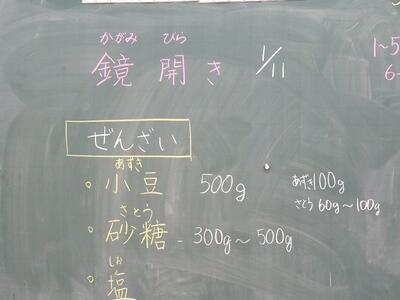 かがみ びら
鏡 開き 1/11
1~5
6~
ぜんざい
あずき
小豆 500g
あずき100g
さとう 60g~100g
さとう
砂糖 - 300g~500g
しお
塩